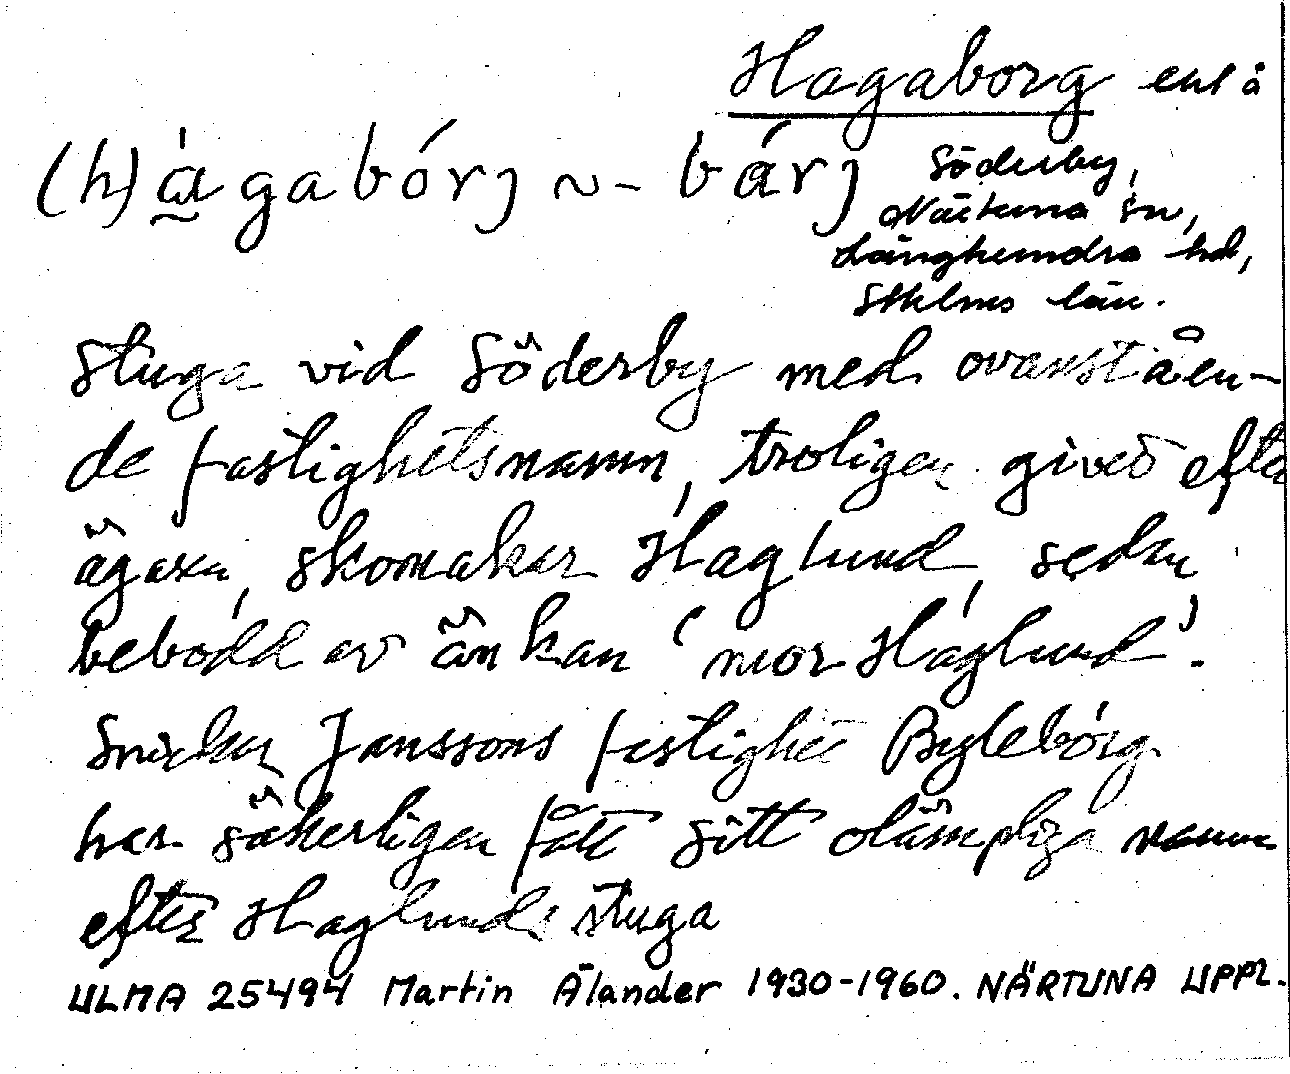 Hagaborg enl å
(h)àgabórj ~ - bárj Söderby,
Närtuna sn,
Långhundra hd,
Sthlms län.
Stuga vid Söderby med ovanståen-
de fastighetsnamn, troligen givet efter
ägaren, skomakar Haglund, sedan
bebodd av änkan 'mor Haglund'.
Snickar Janssons fastighet Byleborg
har säkerligen fått sitt olämpliga namn
efter Haglunds stuga
ULMA 25494 Martin Ålander 1930-1960. NÄRTUNA UPPL.